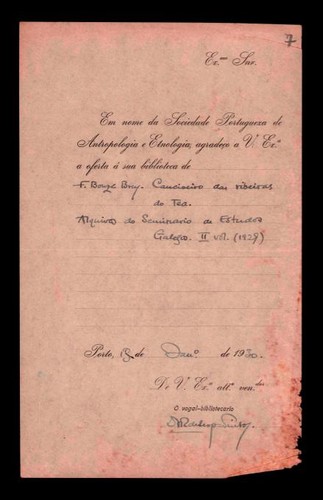 7
Ex.mo Snr.
Em nome da Sociedade Portugueza de
Antropologia e Etnologia, agradeço a V. Ex.ª
a oferta á sua biblioteca de
F. Bouza Brey. Cancioneiro das ribeiras
do Tea.
Arquivos do Seminario de Estudos
Galegos. II vol. (1929)
Porto, de Jan.º de 1930.
De V. Ex.ª att.º ven.dor
O vogal-bibliotecario